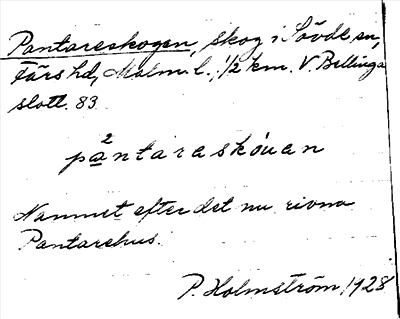 Pantareskogen, skog i Sövde sn,
Färs hd, Malm. l., 1/2 km. V. Bellinga
slott. 83.
pa²ntaraskóuan
Namnet efter det nu rivna
Pantarehus.
P. Holmström 1928